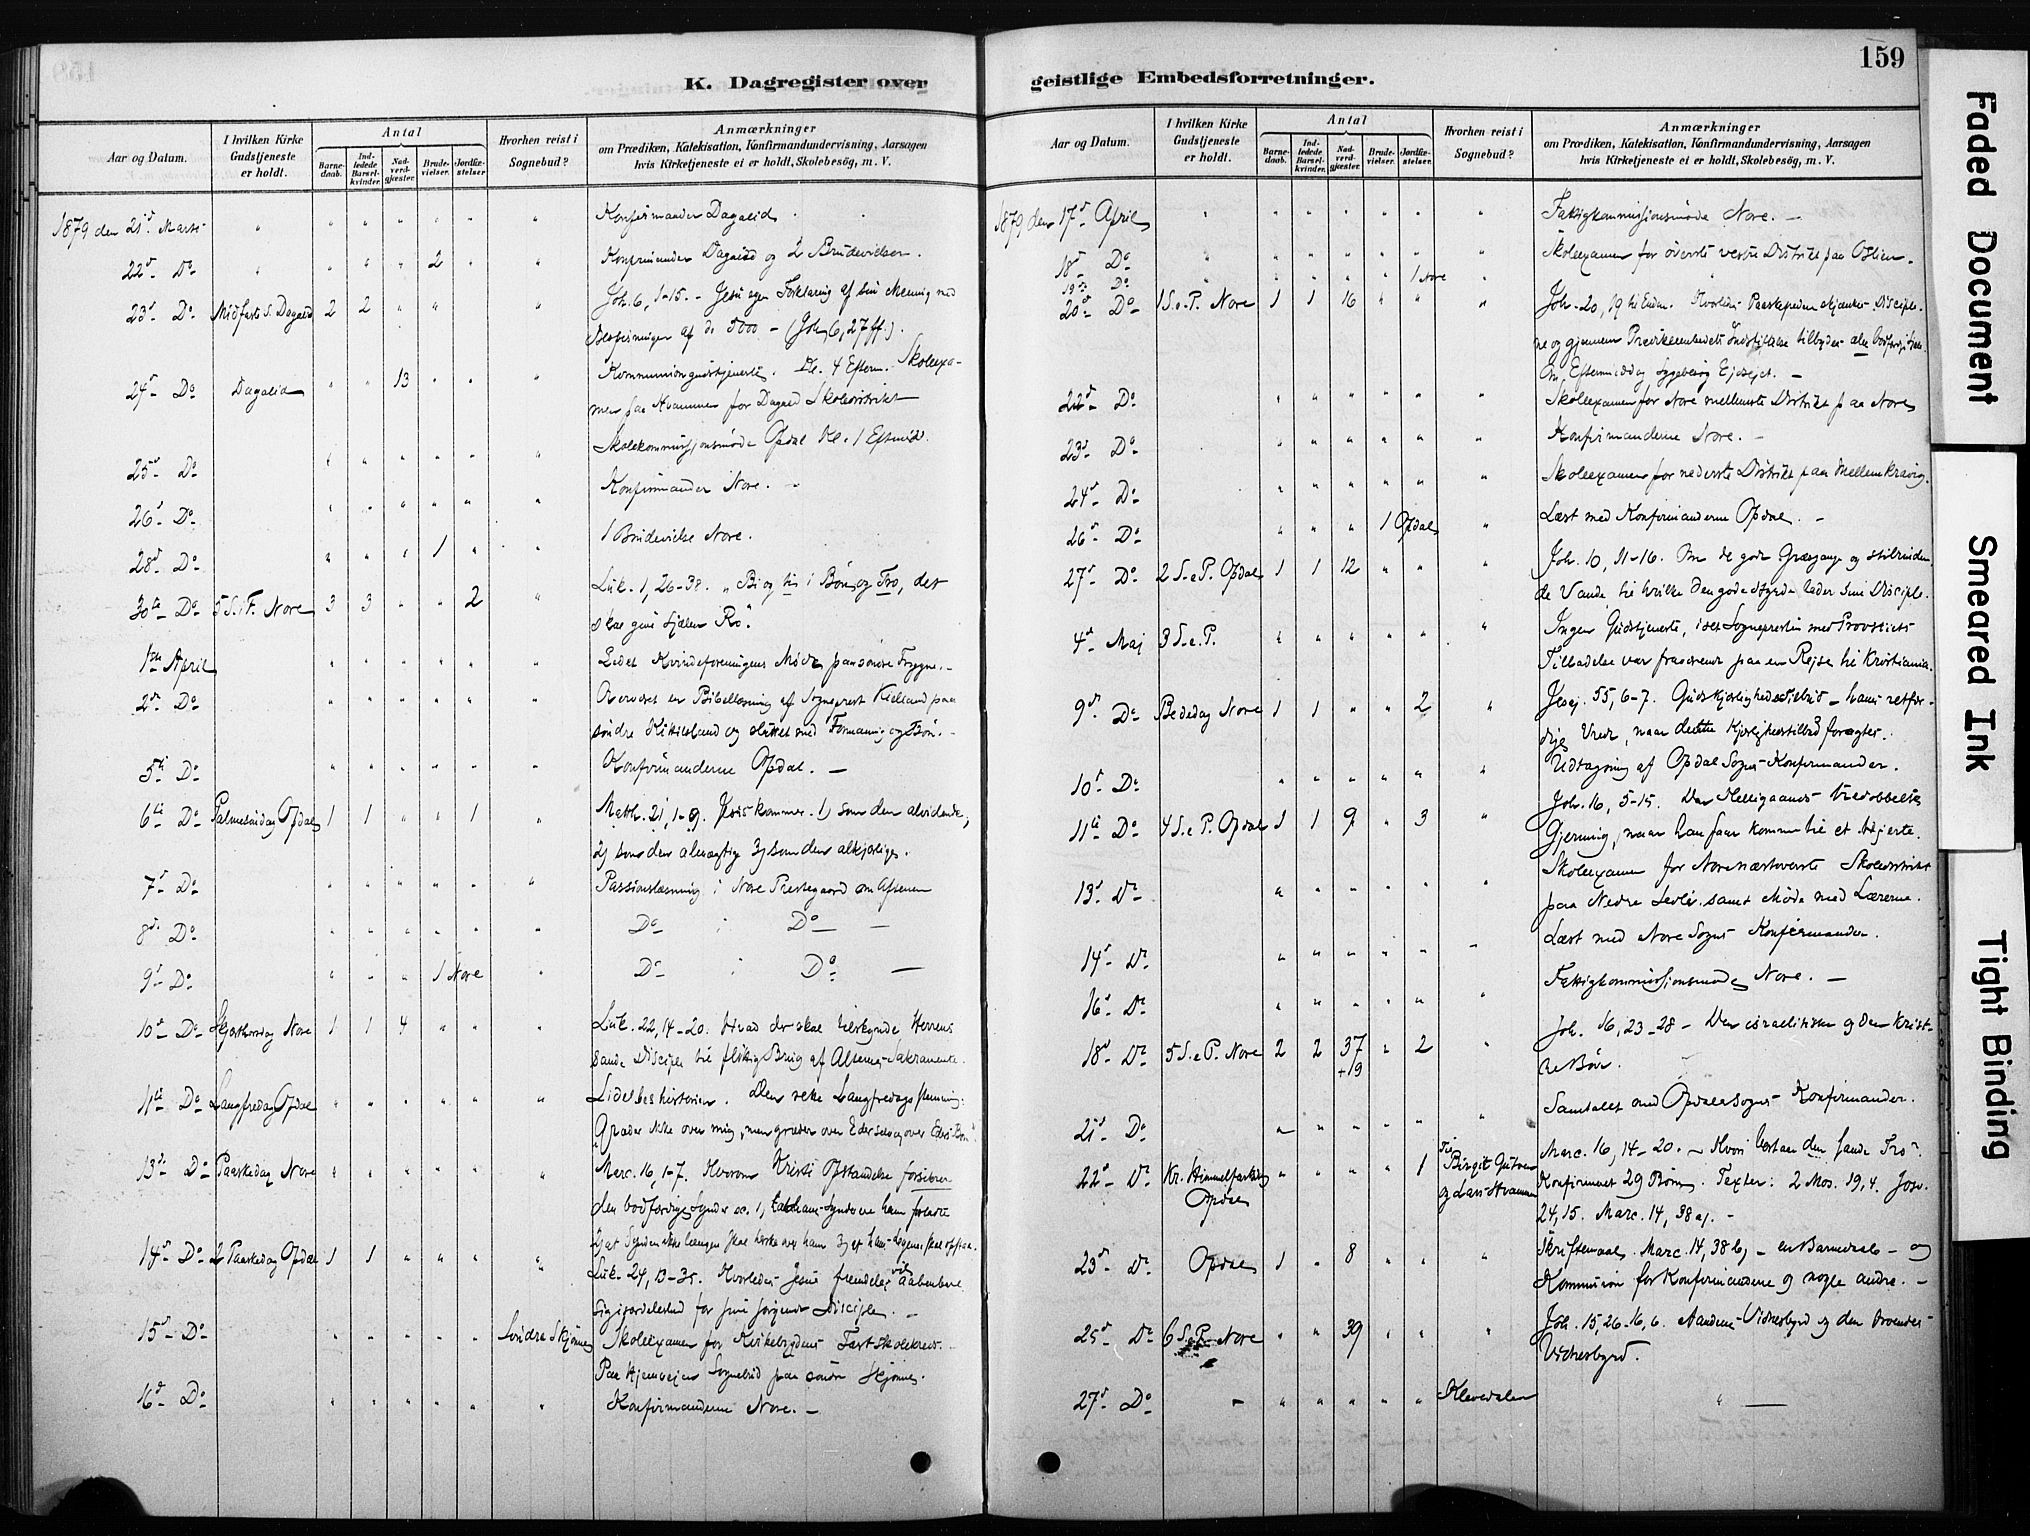 159
K. Dagregister over
geistlige Embedsforretninger.
Aar og Datum.
I hvilken Kirke Gudstjeneste er holdt.
Antal
Barnedaab.
Indledede Barselkvinder.
Nadverdgjæster.
Brudevielser.
Jordfæstelser
Hvorhen reist i Sognebud?
Anmærkninger
om Prædiken, Katekisation, Konfirmandundervisning, Aarsagen
hvis Kirketjeneste ei er holdt, Skolebesög, m. V.
1879 den 21d Marts " " " " " " " Konfirmander Dagalid
22d Do " " " " 2 " " Konfirmander Dagalid og 2 Brudevielser.
23d Do Midfaste S. Dagalid 2 2 " " " " Joh. 6, 1-15. - Jesu egen Forklaring af sin Mening med
Bespisningen af de 5000 - (Joh 6, 27 ff.).
24d Do Dagalid " " 13 " " " Kommuniongudstjeneste. Kl. 4 Efterm. Skoleexa-
men paa Hvammen for Dagalid Skoledistrikt
25d Do " " " " " " Skolekommissjonsmøde Opdal Kl. 1 Eftmid.
26d Do " " " " " " Konfirmander Nore. -
28d Do " " " 1 " " 1 Brudevielse Nore.
30te Do 5 S. i F. Nore 3 3 " " 2 " Luk. 1, 26-38. "Bi og ti i Bøn og Tro, det
skal give Sjælen Ro".
1ste April " " " " " " Ledet Kvindeforeningens Møde paa søndre Frygne. -
2d Do " " " " " " Overværet en Bibellæsning af Sogneprest Kielland paa
søndre Kittilsland og sluttet med Formaning og Bøn. -
5te Do " " " " " " Konfirmanderne Opdal. -
6te Do Palmesøndag Opdal 1 1 " " 1 " Matth. 21, 1-9. Jesus kommer. 1) som den alvidende,
2) som den almægtige 3) som den alkjærlige.
7d Do " " " " " " Passionslæsning i Nore Prestegaard om Aftenen
8d Do " " " " " " Do i Do -
9d Do " " " 1 Nore " Do i Do -
10d Do Skjærthorsdag Nore 1 1 4 " " " Luk. 22, 14-20. Hvad der skal tilskynde Herrens
sande Disciple til flittig Brug af Alterens Sakramente.
11te Do Langfredag Opdal " " " " " " Lidelseshistorien. Den rette Langfredagsstemning:
"Græder ikke over mig, men græder over Eder selv og over Eders Børn".
13de Do Paaskedag Nore " " " " " " Marc. 16, 1-7. Hvorom Kristi Opstandelse forsikrer
den bodfærdige Synder
14d Do 2 Paaskedag Opdal 1 1 " " " " 2) at Synden ikke længer skal herske over ham 3) at hans Legeme skal opstaa.
Luk. 24, 13-35. Hvorledes Jesus fremdeles vil aabenbare
sig for sine sørgende Disciple. -
15d Do " " " " " Søndre Skjønne Skoleexamen for Kirkebygdens Fastskolekreds.
Paa Hjemvejen Sognebud paa søndre Skjønne.
16d Do " " " " " " Konfirmanderne Nore. -
Aar og Datum.
I hvilken Kirke Gudstjeneste er holdt.
Antal
Barnedaab.
Indledede Barselkvinder.
Nadverdgjæster.
Brudevielser.
Jordfæstelser.
Hvorhen reist i Sognebud?
Anmærkninger
om Prædiken, Katekisation, Konfirmandundervisning, Aarsagen
hvis Kirketjeneste ei er holdt, Skolebesög, m. V.
1879 den 17d April " " " " " " " Fattigkommissjonsmøde Nore. -
18d Do " " " " " " " Skoleexamen for øverste vestre Distrikt paa Oslien.
19de Do " " " " " 1 Nore "
20d Do 1 S. e. P. Nore 1 1 16 " " " Joh. 20, 19 til Enden. Hvorledes Paaskefreden skjænkes Disciple-
ne og gjennem Prædikeembedets Indstiftelse tilbydes alle
Om Eftermiddag Sygebesøg
22d Do " " " " " " Skoleexamen for Nore mellemste Distrikt paa Nore
23d Do " " " " " " Konfirmanderne Nore. -
24d Do " " " " " " Skoleexamen for nederste Distrikt paa Mellem Kravig.
26d Do " " " 1 Opdal " Læst med Konfirmanderne Opdal. -
27d Do 2 S. e P. Opdal 1 1 12 " " " Joh. 10, 11-16. Om de gode Græsgange og stilrinden-
de Vande, til hvilke den gode Hyrde leder sine Disciple.
4d Maj 3 S. e. P. " " " " " " Ingen Gudstjeneste, idet Sognepresten med Provstiets
Tilladelse var fraværende paa en Rejse til Kristiania.
9d Do Bededag Nore 1 1 " " 2 " Jesaj. 55, 6-7. Guds Kjærlighedstilbud - hans retfær-
dige Vrede, naar dette Kjærlighedstilbud foragtes.
10d Do " " " " " " Udtagning af Opdal Sogns Konfirmander.
11te Do 4 S. e P. Opdal 1 1 9 " 3 " Joh. 16, 5-15. Den Helligaands tredobbelte
Gjerning, naar han faar komme til et Hjerte.
13d Do " " " " " " Skoleexamen for Nore næstøverste Skoledistrikt
paa Nedre Sevli samt Møde med Lærerne.
14d Do " " " " " " Læst med Nore Sogns Konfirmander.
16d Do " " " " " " Fattigkommissjonsmøde Nore. -
18d Do 5 S. e P. Nore 2 2 37 +19 " 2 " Joh. 16, 23-28 - Den israelitiske og den krist-
ne Bøn.
21d Do " " " " " " Samtalet med Opdals Sogns Konfirmander.
22d Do Kr. Himmelfartsdag Opdal " " " " 1 Til Birgit og Lars Hvammen Marc. 16, 14-20. - "Hvori bestaar den sande Tro".
Konfirmeret 29 Børn. Texter: 2 Mos. 19, 4. Jos.
24, 15. Marc. 14, 38 a). -
23d Do Opdal 1 " 8 " " " Skriftemaal. Marc. 14, 38 b) - en Barnedaab - og
Kommunion for Konfirmanderne og nogle andre. -
25d Do 6 S. e P. Nore " " 39 " " " Joh. 15, 26-16, 6. Aandens Vidnesbyrd og den troendes
Vidnesbyrd.
27d Do - " " " " " Klevedalen " -
Faded Document
Smeared Ink
Tight Binding